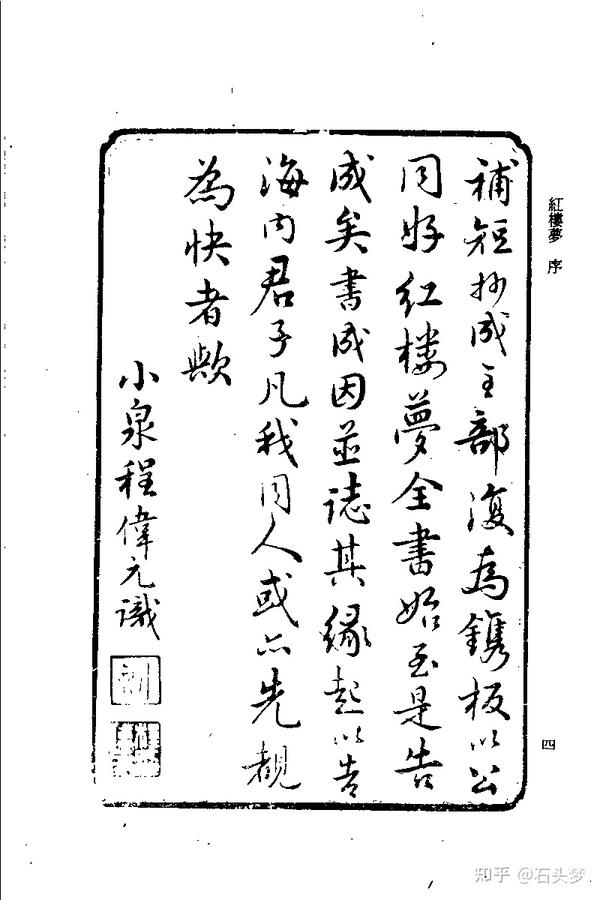 紅樓夢 序
四
補短抄成全部復為鐫板以公
同好紅楼夢全書始至是告
成矣書成因並誌其緣起以告
海内君子凡我同人或亦先覩
為快者歟
小泉程偉元識
知乎 @石头梦